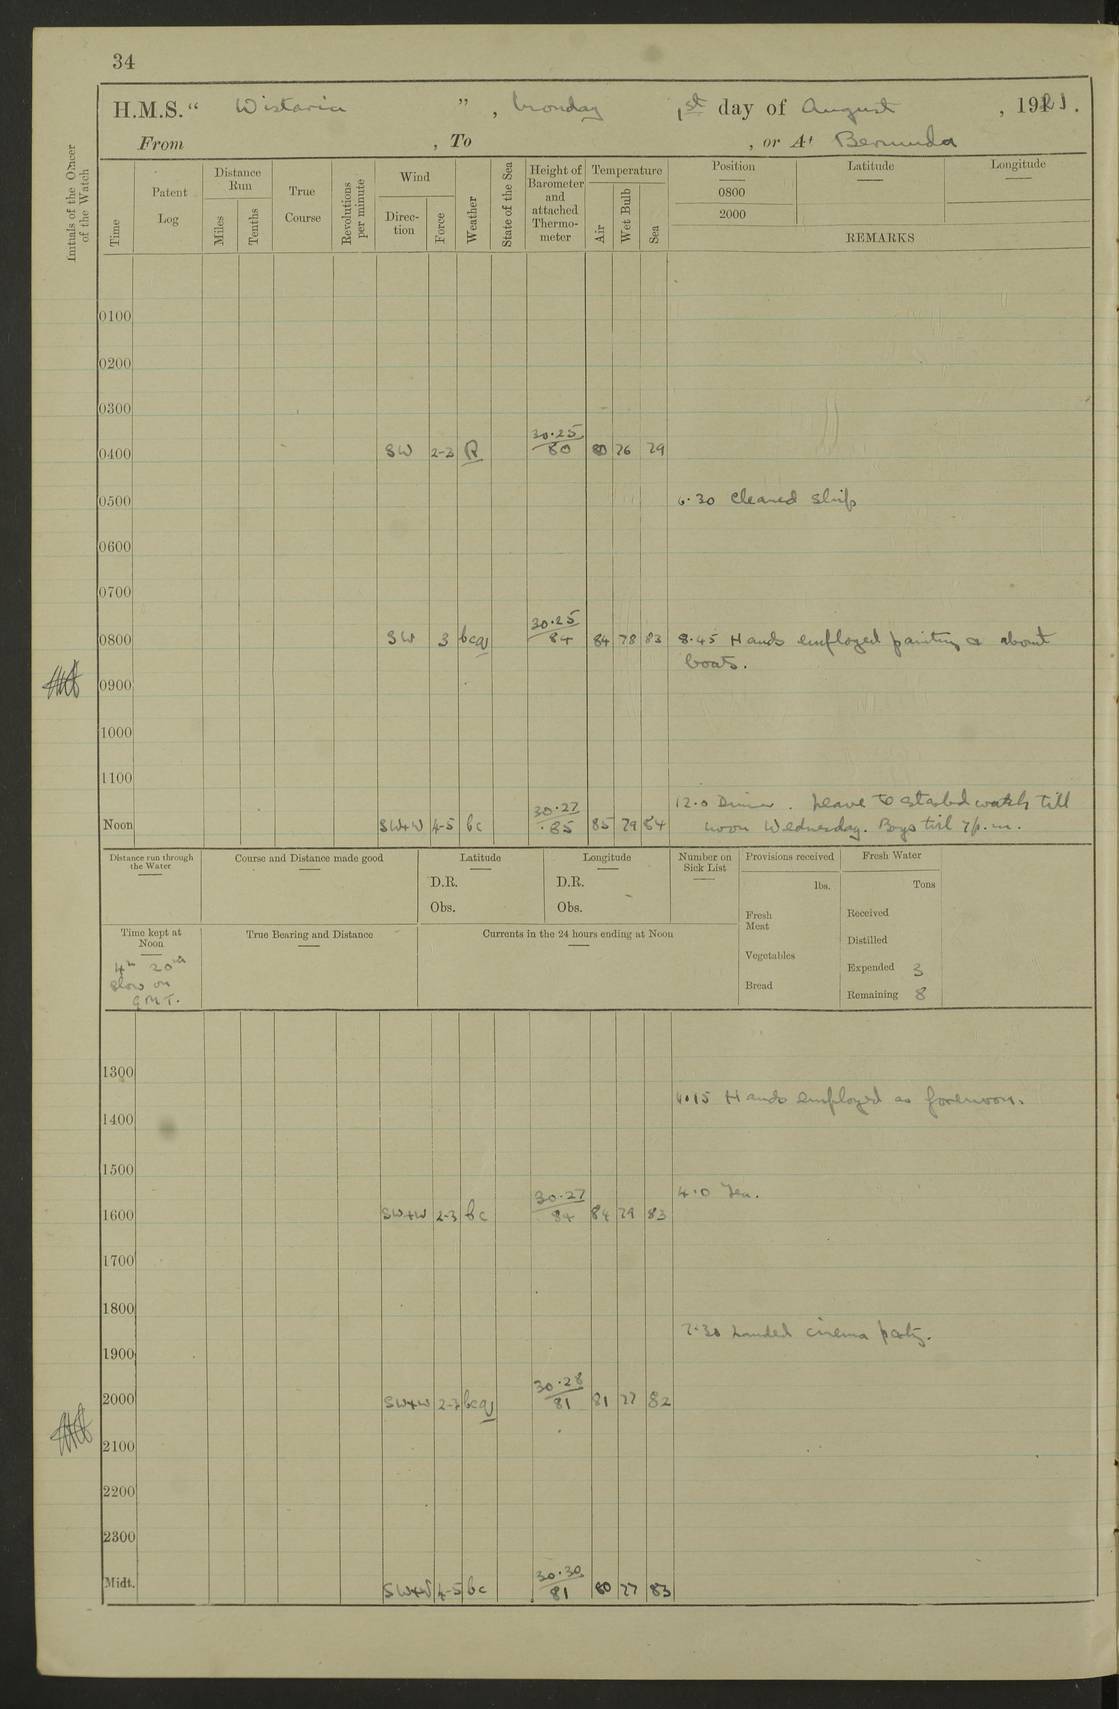 34
H.M.S. “ Wistaria ” , Monday 1st day of August , 1921.
From , To , or At Bermuda
Initials of the Officer of the Watch
Time
Patent Log
Distance Run
Miles
Tenths
True Course
Revolutions per minute
Wind
Direction
Force
Weather
State of the Sea
Height of Barometer and attached Thermometer
Temperature
Air
Wet Bulb
Sea
Position
0800
2000
Latitude
Longitude
REMARKS
0100
0200
0300
0400 SW 2-3 R 30.25/80 80 76 79
0500 6.30 Cleaned Ship
0600
0700
0800 SW 3 bcq 30.25/84 84 78 83 8.45 Hands employed painting & about
boats.
0900
1000
1100
12.0 Dinner. Leave to starbd watch till
Noon SW+W 4-5 bc 30.27/85 85 79 84 noon Wednesday. Boys till 7 p.m.
Distance run through the Water
Course and Distance made good
Latitude
D.R.
Obs.
Longitude
D.R.
Obs.
Number on Sick List
Provisions received
lbs.
Fresh Meat
Vegetables
Bread
Fresh Water
Tons
Received
Distilled
Expended 3
Remaining 8
Time kept at Noon
4h 20m
slow on
G.M.T.
True Bearing and Distance
Currents in the 24 hours ending at Noon
1300
1.15 Hands employed as forenoon.
1400
1500
4.0 Tea.
1600 SW+W 2-3 bc 30.27/84 84 79 83
1700
1800
7.30 Landed cinema party.
1900
2000 SW+W 2-3 bcq 30.28/81 81 77 82
2100
2200
2300
Midt. SW+W 4-5 bc 30.30/81 80 77 83